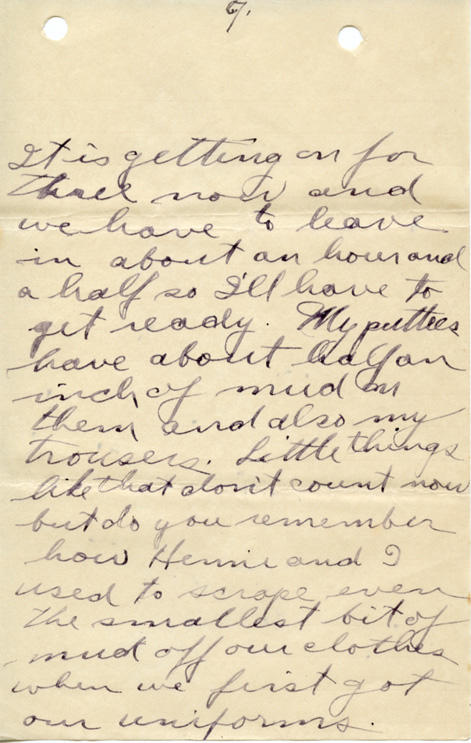 7.
It is getting on for
three now and
we have to leave
in about an hour and
a half so I'll have to
get ready. My puttees
have about half an
inch of mud on
them, and also my
trousers. Little things
like that don't count now
but do you remember
how Hennie and I
used to scrape even
the smallest bit of
mud off our clothes
when we first got
our uniforms.